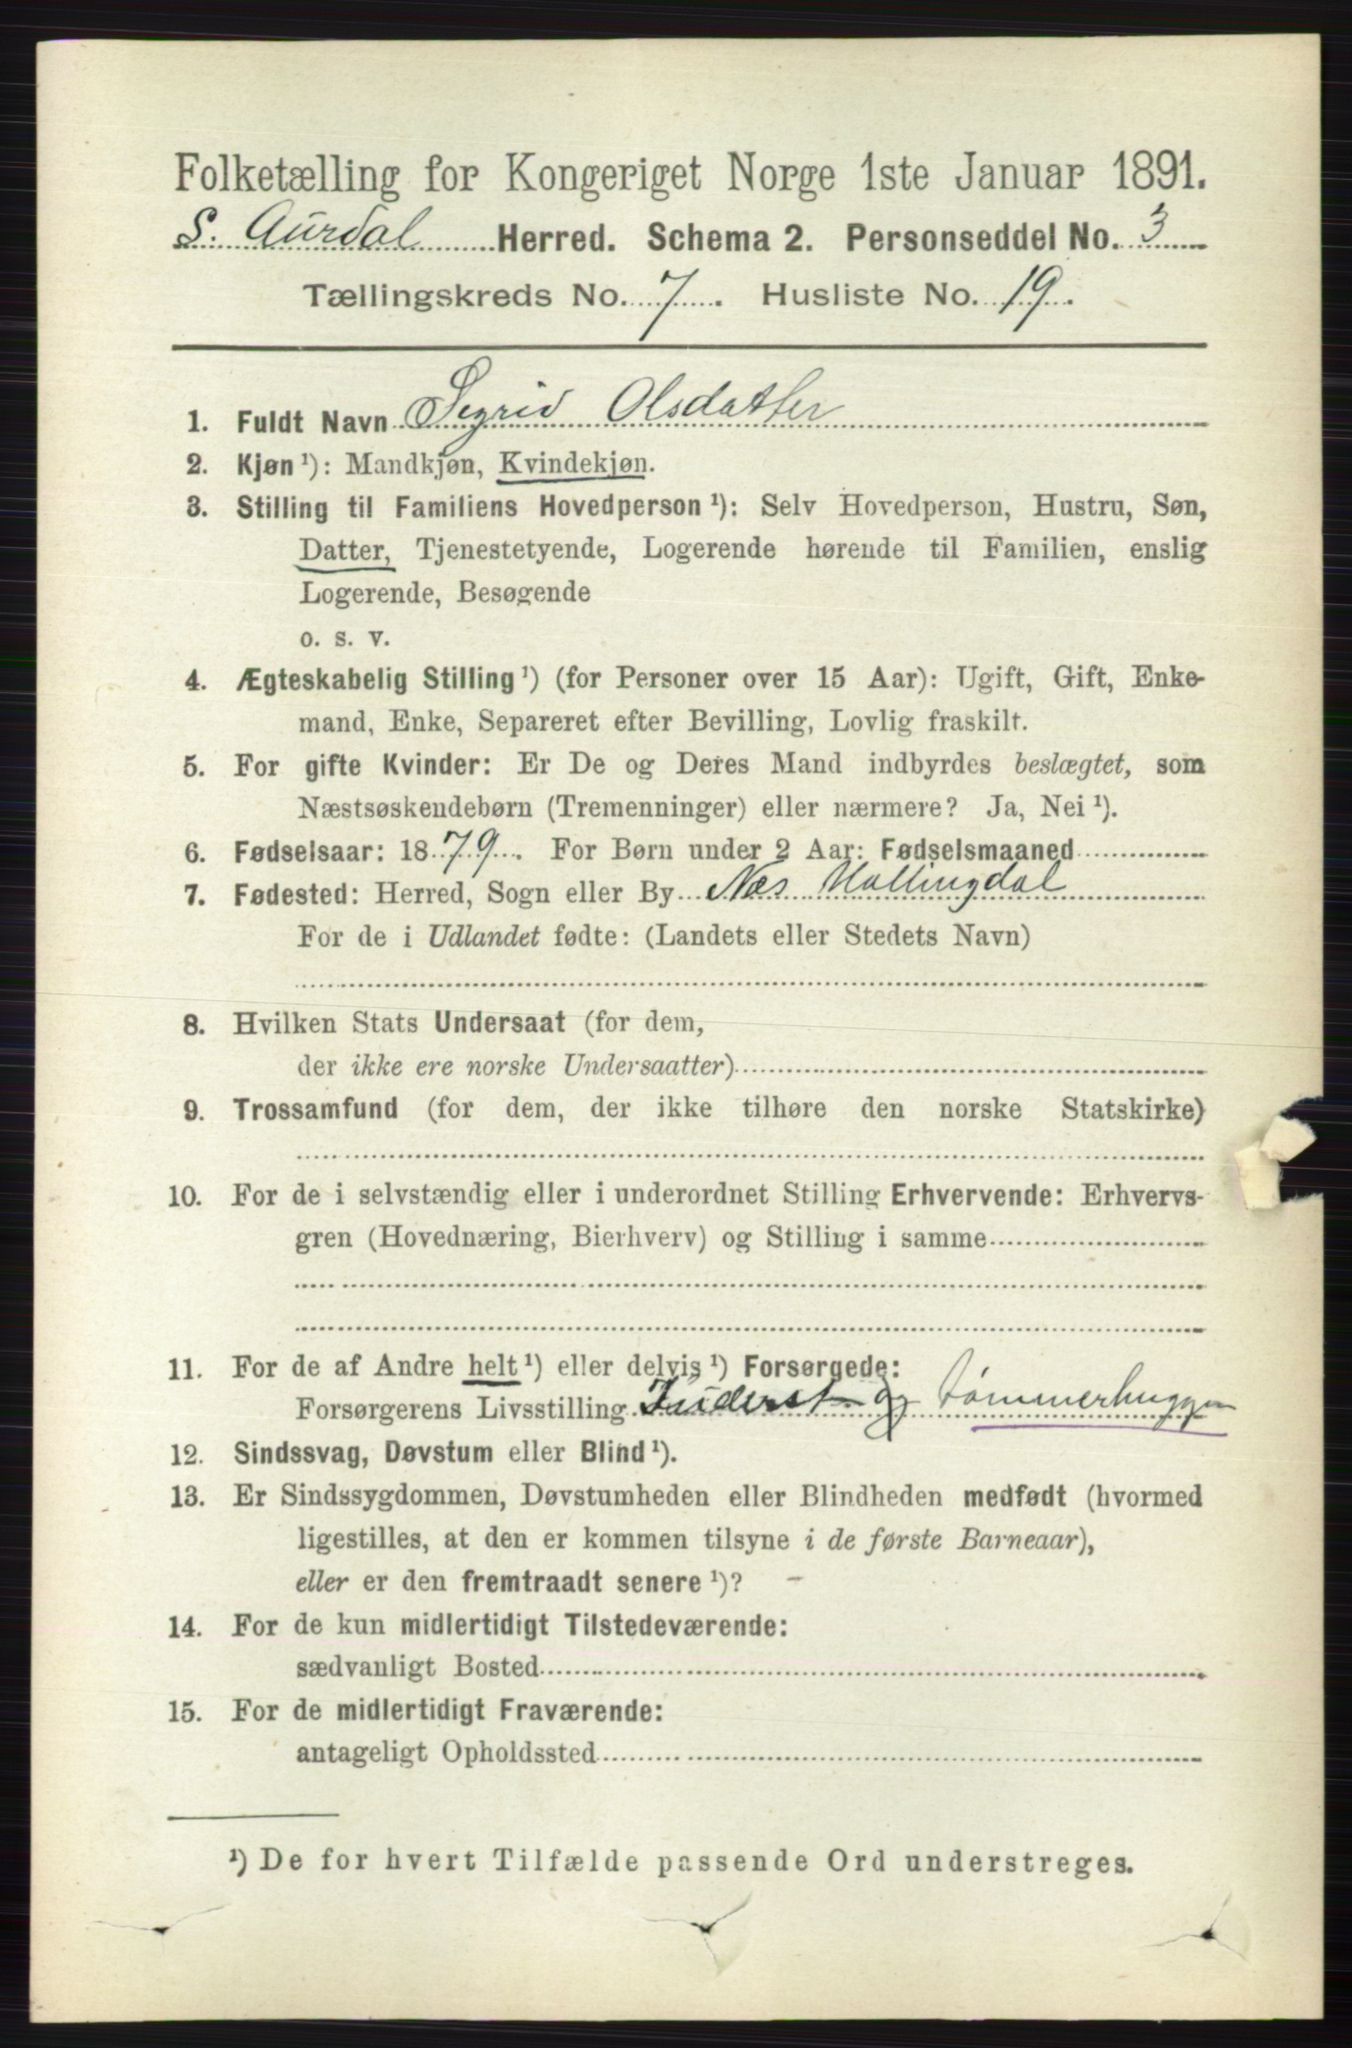 Folketælling for Kongeriget Norge 1ste Januar 1891.
S. Aurdal Herred. Schema 2. Personseddel No. 3
Tællingskreds No. 7. Husliste No. 19.
1. Fuldt Navn Sigrid Olsdatter
2. Kjøn ¹): Mandkjøn, Kvindekjøn.
3. Stilling til Familiens Hovedperson ¹): Selv Hovedperson, Hustru, Søn,
Datter, Tjenestetyende, Logerende hørende til Familien, enslig
Logerende, Besøgende
o. s. v.
4. Ægteskabelig Stilling ¹) (for Personer over 15 Aar): Ugift, Gift, Enke-
mand, Enke, Separeret efter Bevilling, Lovlig fraskilt.
5. For gifte Kvinder: Er De og Deres Mand indbyrdes beslægtet, som
Næstsøskendebørn (Tremenninger) eller nærmere? Ja, Nei ¹).
6. Fødselsaar: 1879. For Børn under 2 Aar: Fødselsmaaned
7. Fødested: Herred, Sogn eller By Næs Hallingdal
For de i Udlandet fødte: (Landets eller Stedets Navn)
8. Hvilken Stats Undersaat (for dem,
der ikke ere norske Undersaatter)
9. Trossamfund (for dem, der ikke tilhøre den norske Statskirke)
10. For de i selvstændig eller i underordnet Stilling Erhvervende: Erhvervs-
gren (Hovednæring, Bierhverv) og Stilling i samme
11. For de af Andre helt ¹) eller delvis ¹) Forsørgede:
Forsørgerens Livsstilling Inderst og tømmerhugger
12. Sindssvag, Døvstum eller Blind ¹).
13. Er Sindssygdommen, Døvstumheden eller Blindheden medfødt (hvormed
ligestilles, at den er kommen tilsyne i de første Barneaar),
eller er den fremtraadt senere ¹)? –
14. For de kun midlertidigt Tilstedeværende:
sædvanligt Bosted
15. For de midlertidigt Fraværende:
antageligt Opholdssted
¹) De for hvert Tilfælde passende Ord understreges.